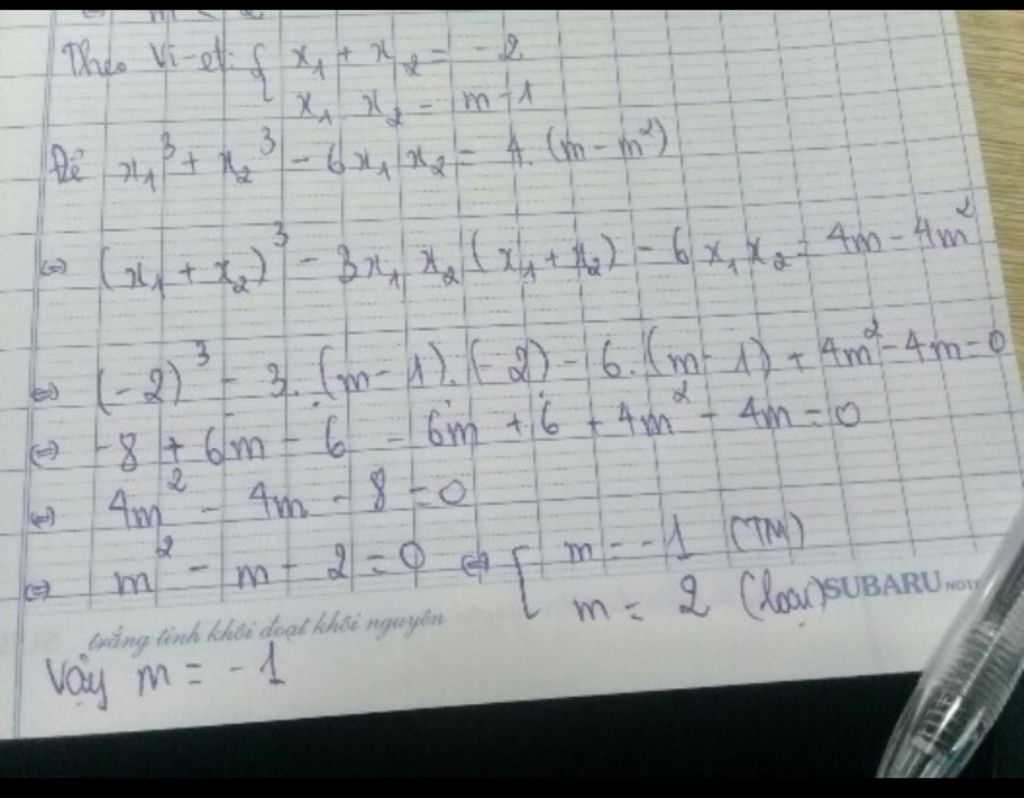 ⇔ m < 2
Theo Vi-et: { x₁ + x₂ = -2
x₁ x₂ = m-1
Để x₁³ + x₂³ - 6x₁x₂ = 4.(m-m²)
⇔ (x₁+x₂)³ - 3x₁x₂(x₁+x₂) - 6x₁x₂ = 4m - 4m²
⇔ (-2)³ - 3.(m-1).(-2) - 6.(m-1) + 4m² - 4m = 0
⇔ -8 + 6m - 6 - 6m + 6 + 4m² - 4m = 0
⇔ 4m² - 4m - 8 = 0
⇔ m² - m - 2 = 0 ⇔ [ m = -1 (TM)
m = 2 (loại) SUBARU NOTE
trắng tinh khôi đoạt khôi nguyên
Vậy m = -1